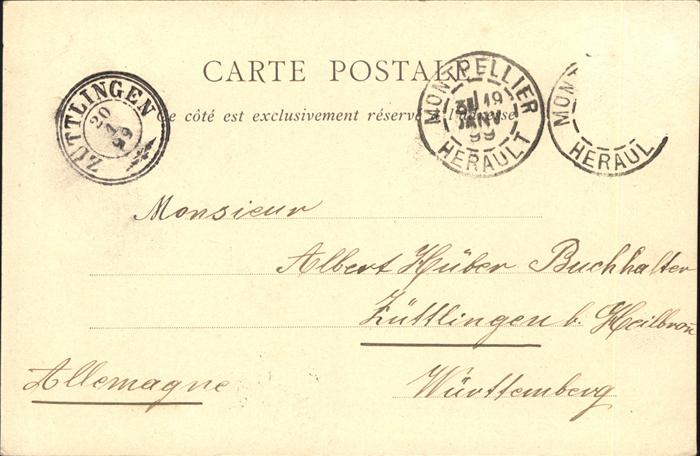 CARTE POSTALE
Ce côté est exclusivement réservé à l'adresse
ZÜTTLINGEN
20
1
99
MONTPELLIER
19
JANV
99
HERAULT
MONT
HERAUL
Monsieur
Albert Hüber Buchhalter
Züttlingen b. Heilbron̄
Allemagne
Württemberg